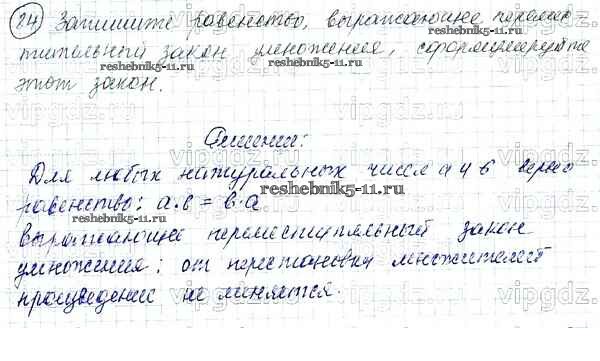 24 Запишите равенство, выражающее перемес-
тительный закон умножения, сформулируйте
этот закон.
reshebnik5-11.ru
reshebnik5-11.ru
vipgdz.
Решение:
Для любых натуральных чисел a и b верно
reshebnik5-11.ru
равенство: a·b = b·a
выражающее переместительный закон
умножения: от перестановки множителей
reshebnik5-11.ru
произведение не меняется.
vipgdz.